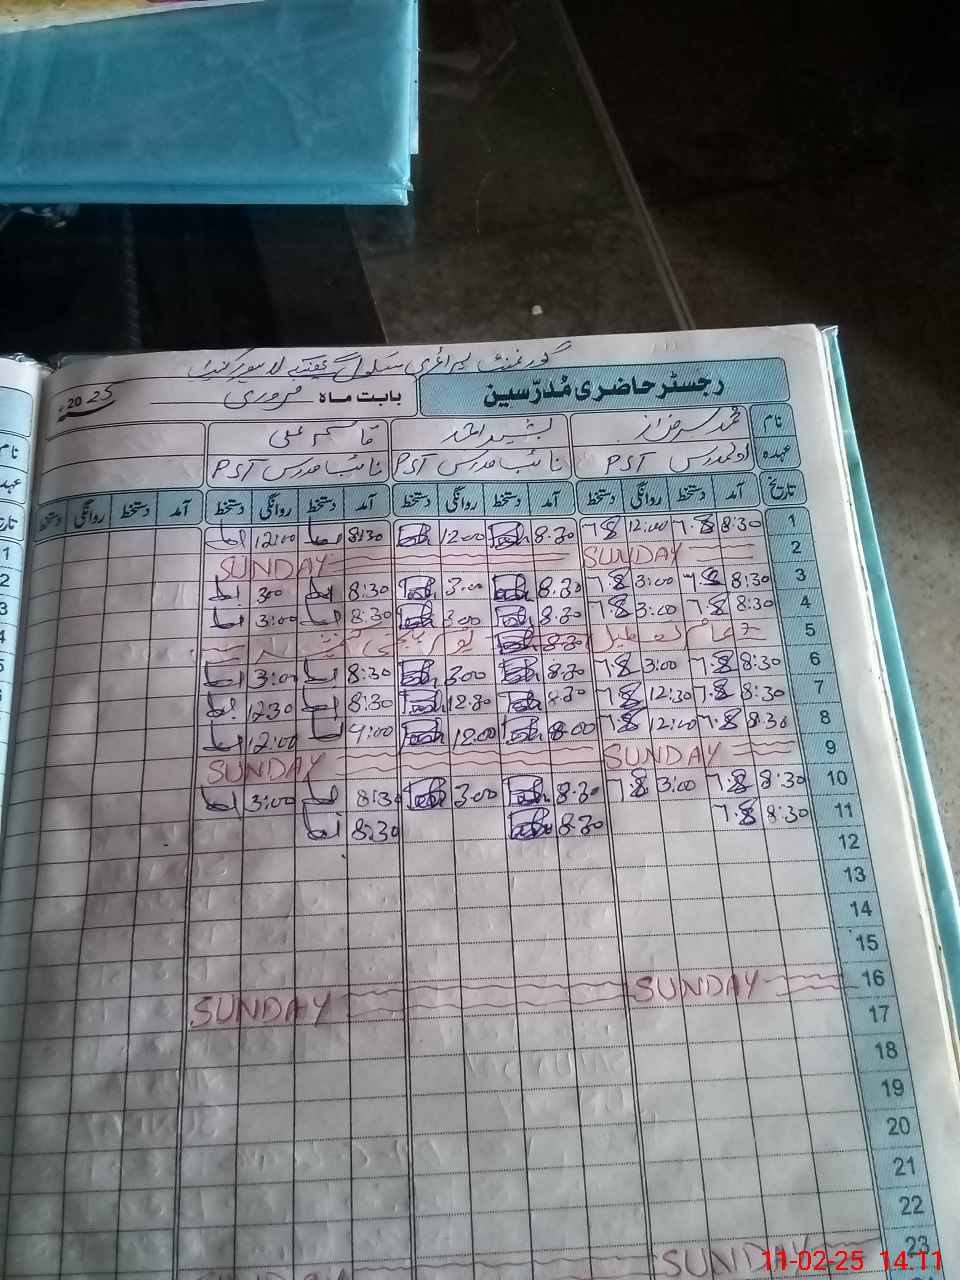 گورنمنٹ پرائمری سکول
رجسٹر حاضری مُدرّسین
بابت ماہ فروری 2025ء
نام محمد سرفراز بشیر احمد قاسم علی
عہدہ اول مدرس PST نائب مدرس PST نائب مدرس PST
تاریخ آمد دستخط روانگی دستخط آمد دستخط روانگی دستخط آمد دستخط روانگی دستخط آمد دستخط روانگی دستخط
1 8:30 12:00 8:30 12:00 8:30 12:00
2 SUNDAY SUNDAY
3 8:30 3:00 8:30 3:00 8:30 3:00
4 8:30 3:00 8:30 3:00 8:30 3:00
5 عام تعطیل 8:30 یوم یکجہتی کشمیر
6 8:30 3:00 8:30 3:00 8:30 3:00
7 8:30 12:30 8:30 12:30 8:30 12:30
8 8:30 12:00 8:00 12:00 9:00 12:00
9 SUNDAY SUNDAY
10 8:30 3:00 8:30 3:00 8:30 3:00
11 8:30 8:30 8:30
12
13
14
15
16 SUNDAY SUNDAY
17
18
19
20
21
22
23 SUNDAY
11-02-25 14:11